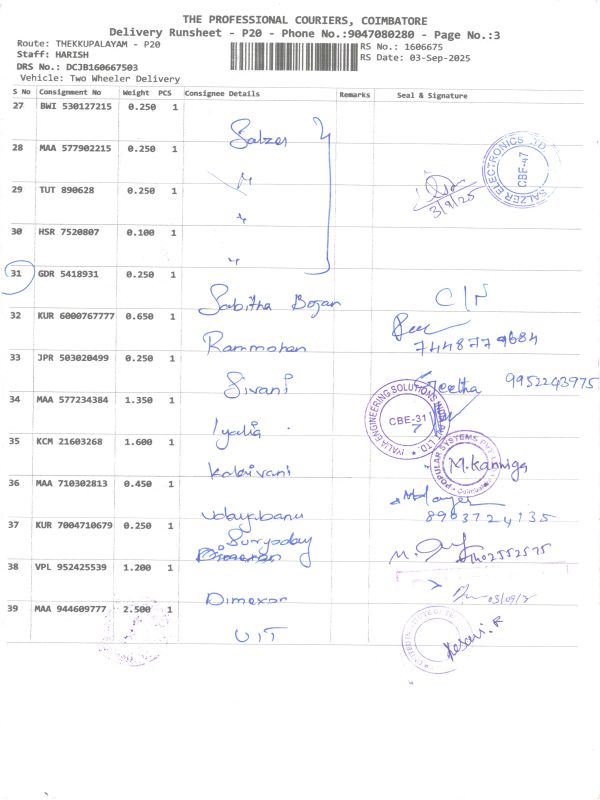 THE PROFESSIONAL COURIERS, COIMBATORE
Delivery Runsheet - P20 - Phone No.:9047080280 - Page No.:3
Route: THEKKUPALAYAM - P20
Staff: HARISH
DRS No.: DCJB160667503
Vehicle: Two Wheeler Delivery
RS No.: 1606675
RS Date: 03-Sep-2025
S No Consignment No Weight PCS Consignee Details Remarks Seal & Signature
27 BWI 530127215 0.250 1 Salzer
28 MAA 577902215 0.250 1 "
3/9/25
SALZER ELECTRONICS LTD CBE-47
29 TUT 890628 0.250 1 "
30 HSR 7520807 0.100 1 "
31 GDR 5418931 0.250 1 Sabitha Bojan C/N
32 KUR 6000767777 0.650 1 Rammohan 7448779684
33 JPR 503020499 0.250 1 Sivani Geetha 9952243975
34 MAA 577234384 1.350 1 Iyalia
IYALIA ENGINEERING SOLUTIONS CBE-31
35 KCM 21603268 1.600 1 Kalaivani M.Kanniga
POPULAR SYSTEMS PVT
36 MAA 710302813 0.450 1 Udayabanu 8903724135
37 KUR 7004710679 0.250 1 Suryoday
38 VPL 952425539 1.200 1 Dimexor 03/09/2
39 MAA 944609777 2.500 1 UIT Kesari.R